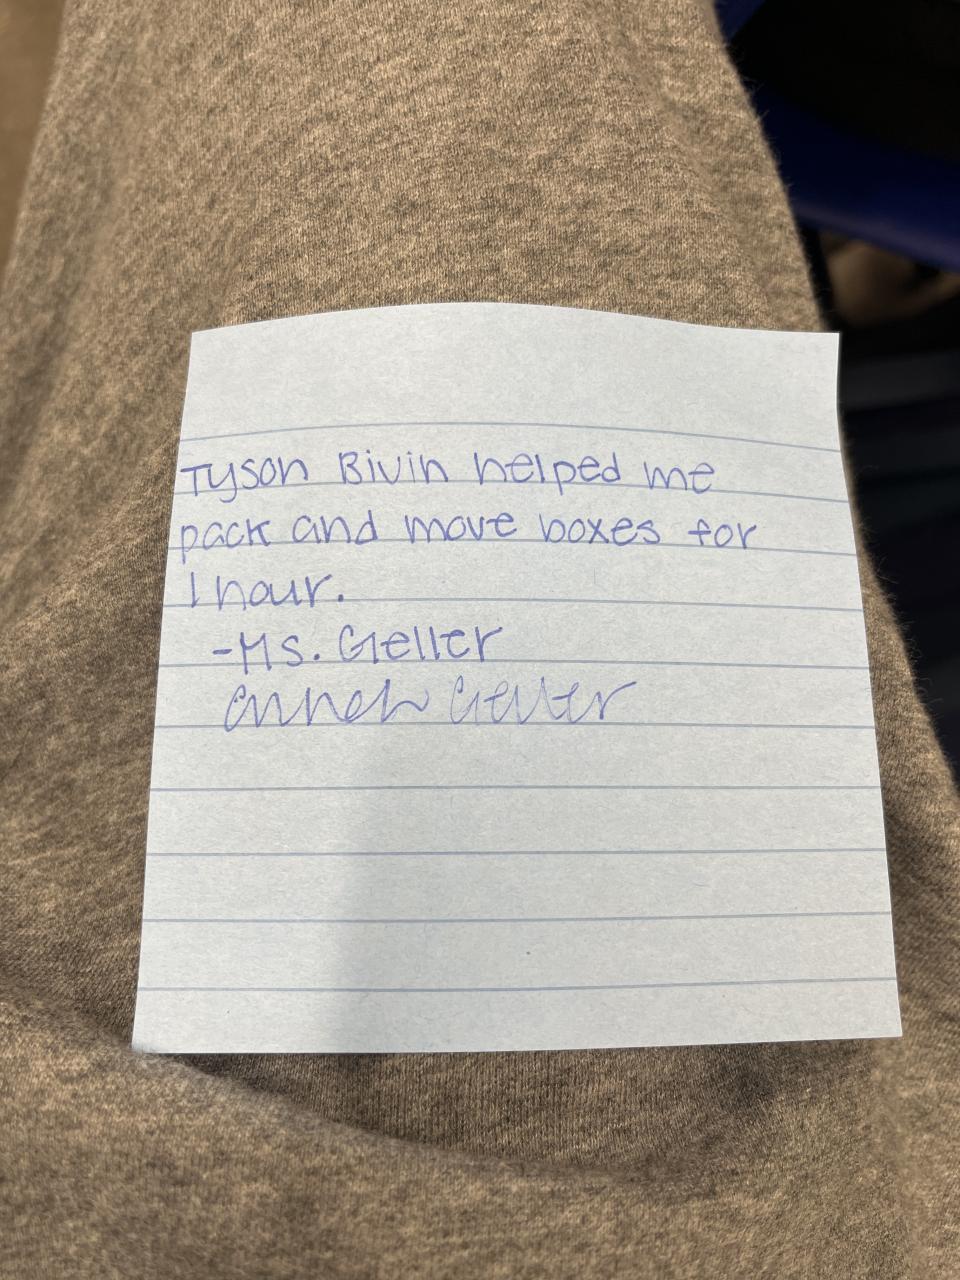 Tyson Bivin helped me
pack and move boxes for
1 hour.
-Ms. Geller
Geller